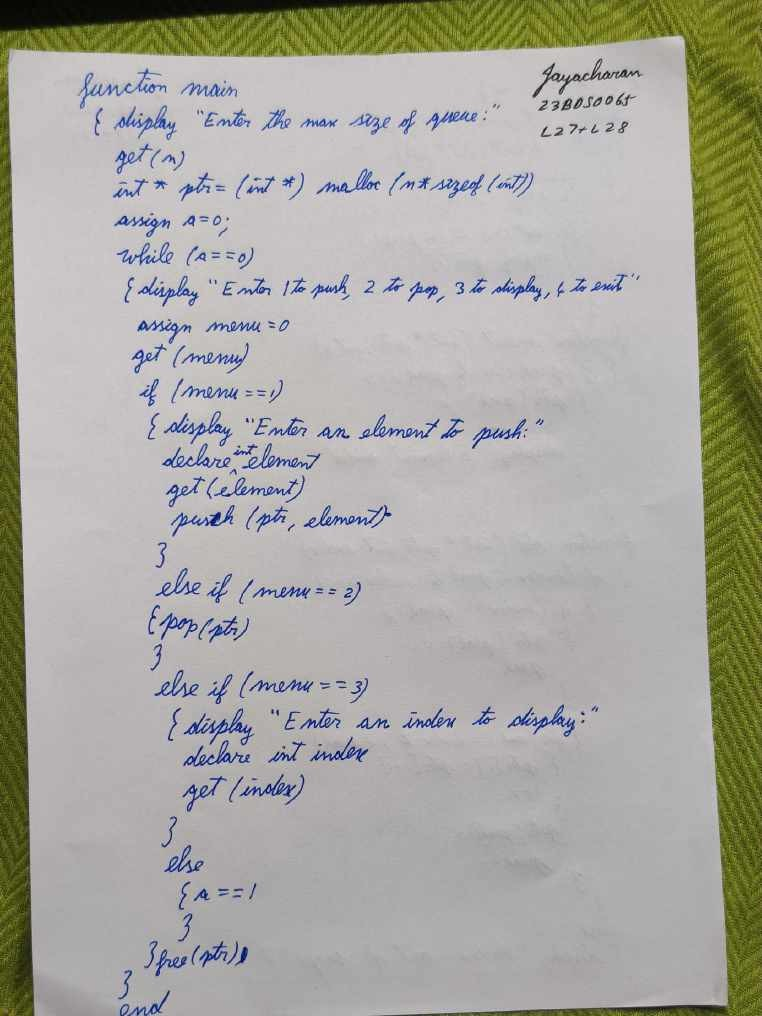 Jayacharan
23BDS0065
L27+L28
function main
{ display "Enter the max size of queue:"
get(n)
int * ptr= (int *) malloc (n* sizeof (int))
assign a=0;
while (a==0)
{ display "Enter 1 to push, 2 to pop, 3 to display, 4 to exit"
assign menu=0
get (menu)
if (menu==1)
{ display "Enter an element to push:"
declare int element
get (element)
push (ptr, element)
}
else if (menu==2)
{pop(ptr)
}
else if (menu==3)
{ display "Enter an index to display:"
declare int index
get (index)
}
else
{ a ==1
}
} free(ptr)
}
end